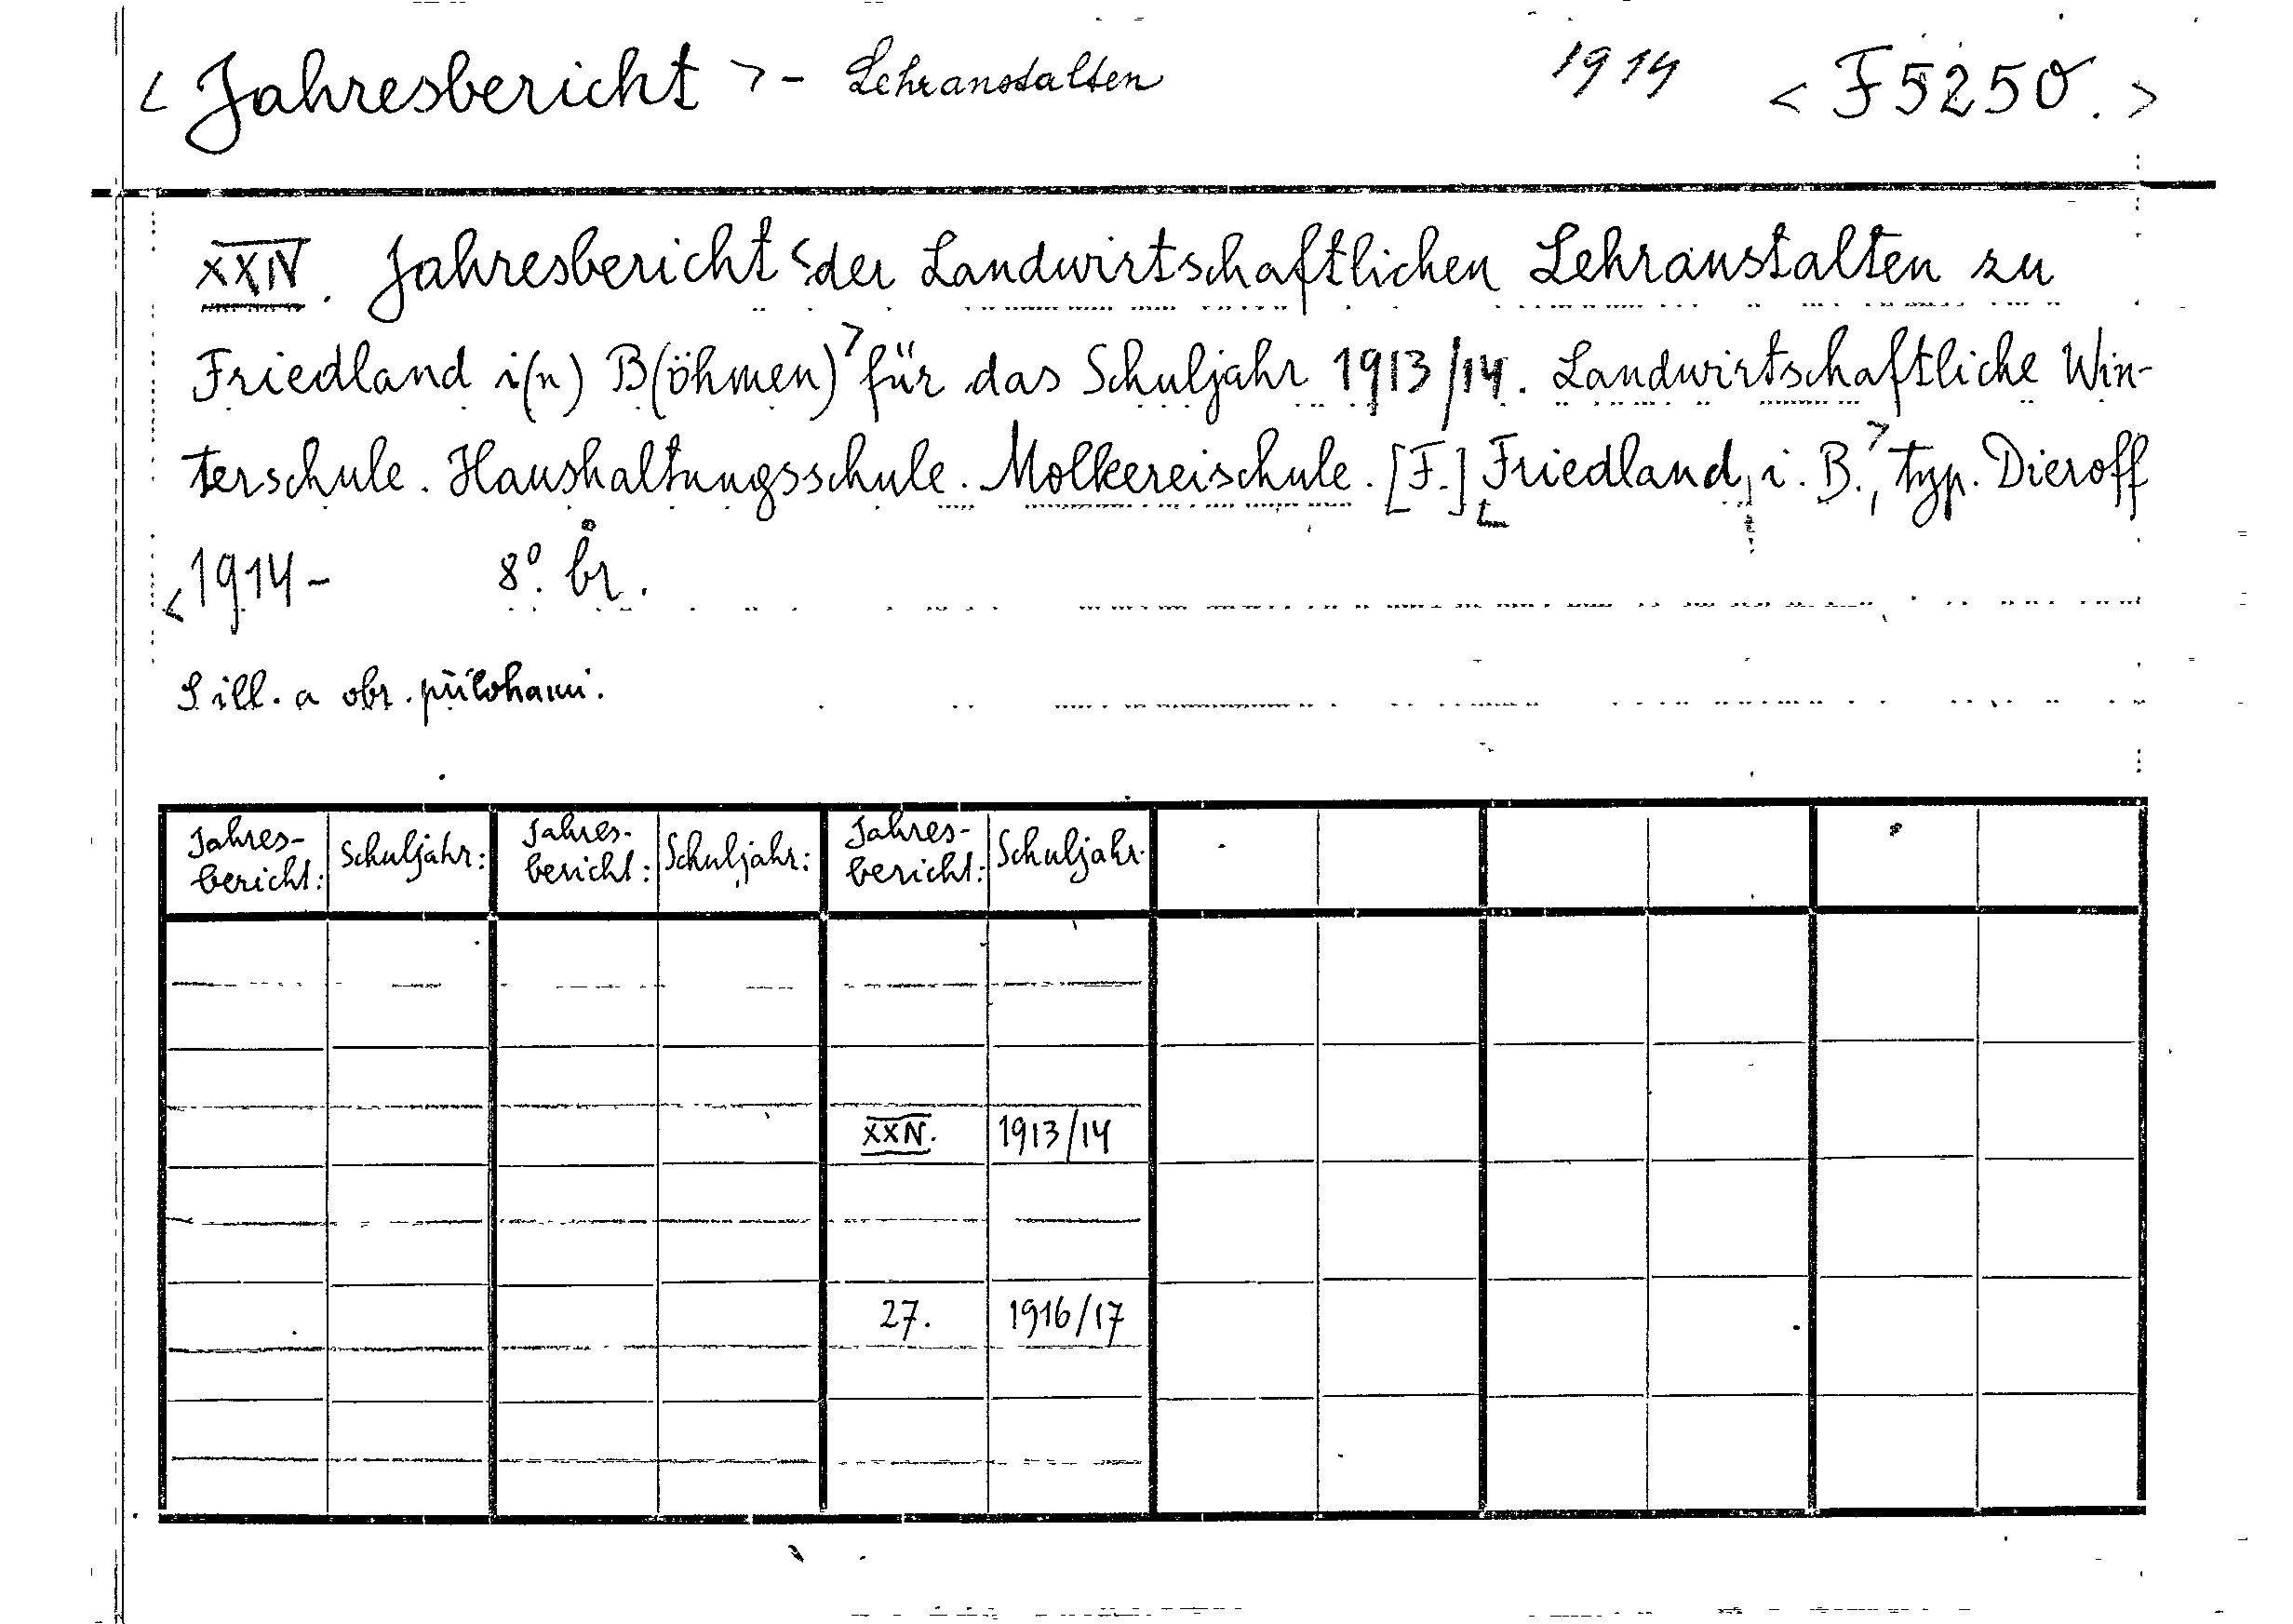 < Jahresbericht > - Lehranstalten 1914 < F 5250. >
XXIV. Jahresbericht < der Landwirtschaftlichen Lehranstalten zu
Friedland i(n) B(öhmen) > für das Schuljahr 1913/14. Landwirtschaftliche Win-
terschule. Haushaltungsschule. Molkereischule. [F.] Friedland, i. B., > typ. Dieroff
< 1914- 8°. br.
S ill. a obr. přílohami.
Jahres- bericht: Schuljahr: Jahres- bericht: Schuljahr: Jahres- bericht: Schuljahr:
XXIV. 1913/14
27. 1916/17